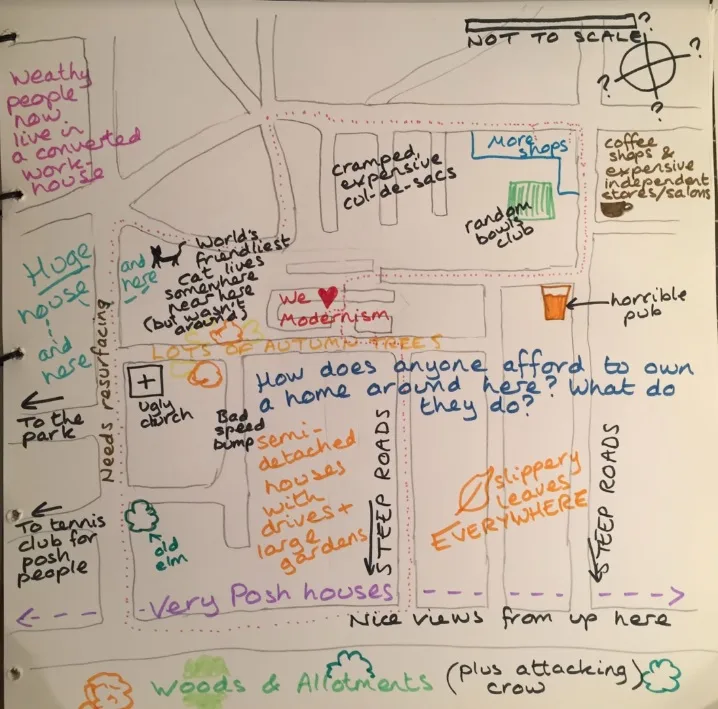 NOT TO SCALE
?
?
?
?
Weathy
people
now
live in
a converted
work-
house
cramped,
expensive
cul-de-sacs
More
shops
coffee
shops &
expensive
independent
stores/salons
random
bowls
club
Huge
house
and
here
and
here
World's
friendliest
cat lives
somewhere
near here
(but wasn't
around)
We
Modernism
horrible
pub
LOTS OF AUTUMN TREES
Needs resurfacing
ugly
church
Bad
speed
bump
How does anyone afford to own
a home around here? What do
they do?
To the
park
semi-
detached
houses
with
drives +
large
gardens
STEEP ROADS
slippery
leaves
EVERYWHERE
STEEP ROADS
To tennis
club for
posh
people
old
elm
Very Posh houses
Nice views from up here
Woods & Allotments (plus attacking
crow)